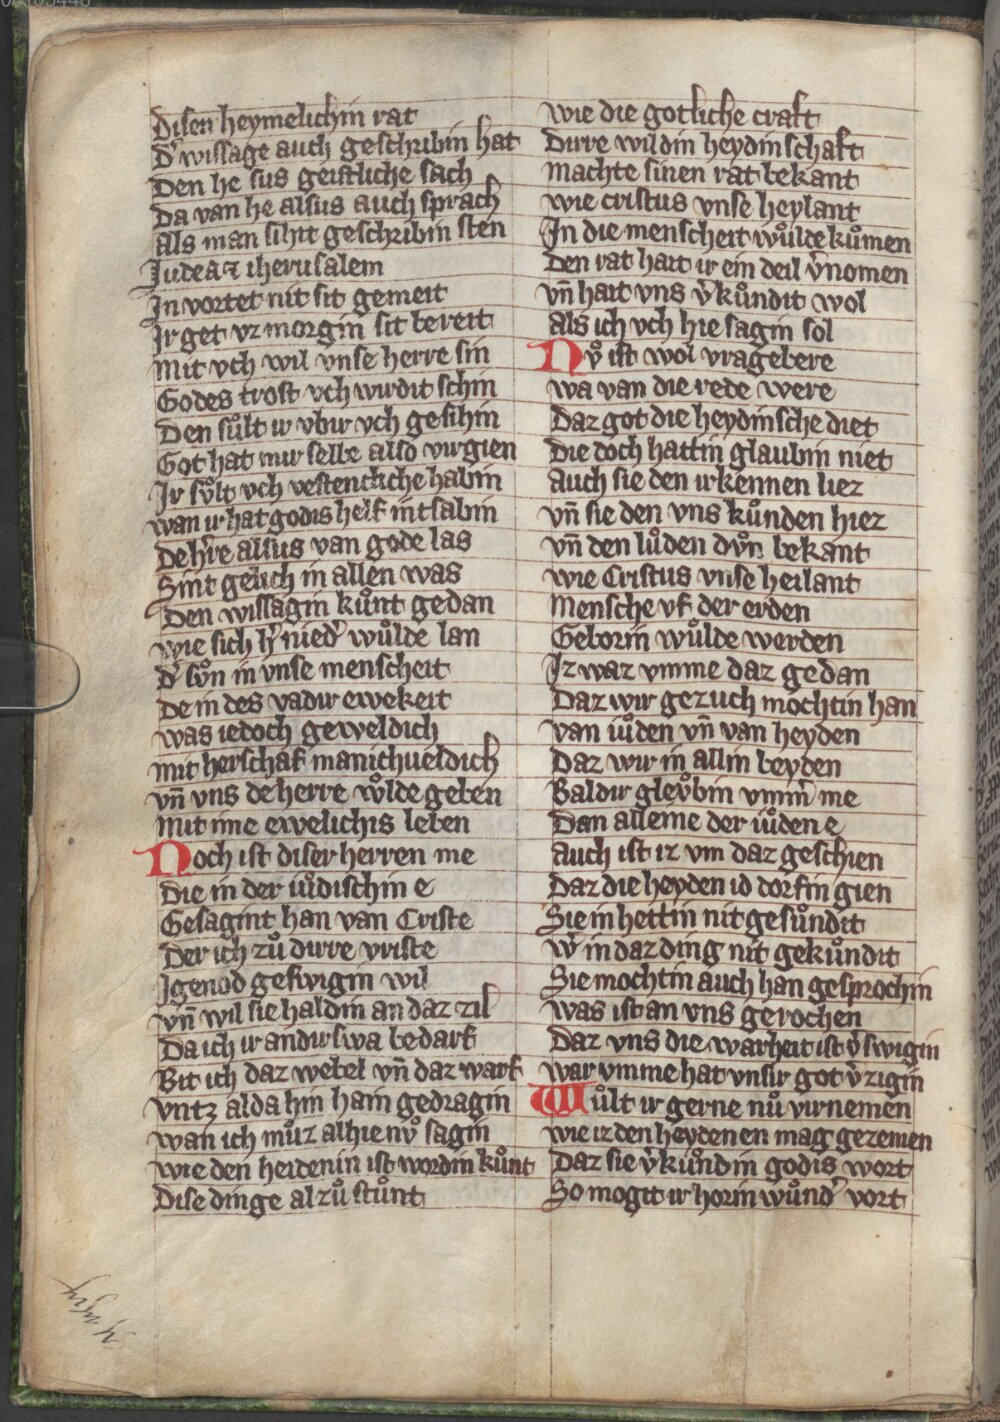 Disen heymelichin rat
D͛ wissage auch geschribin hat
Den he sus geistliche sach
Da van he alsus auch sprach
Als man sihit geschribin sten
Judea ⁊ iherusalem
In vortet nit sit gemeit
Ir get vz morgin sit bereit
Mit vch wil vnse herre sin
Godes trost vch wirdit schin
Den suͦlt ir vbir vch gesihin
Got hat mir selbe also virgien
Ir svͦlt vch vestentliche habin
wan ir hat godis helf intsabin
De h͛re alsus van gode las
Sint gelich in allen was
Den wissagin kuͦnt gedan
wie sich h͛ nied͛ wuͦlde lan
d͛ svͦn in vnse menscheit
De in des vadir ewekeit
was iedoch geweldich
mit herschaf manichueldich
vn̄ vns de herre woͧlde geben
Mit ime ewelichis leben
Noch ist diser herren me
Die in der iuͦdischin e
Gesagint han van Criste
Der ich zuͦ dirre vriste
Igenod geswigin wil
vn̄ wil sie haldin an daz zil
Da ich ir andirswa bedarf
Bit ich daz webel vn̄ daz warf
vntz alda hin hain gedragin
wan ich muͦz alhie nvͦ sagin
wie den heidenin ist wordin kuͦnt
Dise dinge al zuͦ stuͦnt
wie die gotliche craft
Dirre wildin heydinschaft
machte sinen rat bekant
wie cristus vnse heylant
In die menscheit wuͦlde kuͦmen
Den rat hait ir ein deil v͛nomen
vn̄ hait vns v͛kuͦndit wol
als ich vch hie sagin sol
Nvͦ ist wol vragebere
wa van die rede were
Daz got die heydinsche diet
Die doch hattin glaubin niet
auch sie den irkennen liez
vn̄ sie den vns kuͦnden hiez
vn̄ den luͦden dvͦn bekant
wie Cristus vnse heilant
Mensche vf der erden
Geborin wuͦlde werden
Iz waz vmme daz gedan
Daz wir gezuch mochtin han
van iuͦden vn̄ van heyden
Daz wir in allin beyden
Baldir glevͦbin vmm̄ me
Dan alleine der iuͦden e
auch ist iz vm daz geschien
Daz die heyden id dorfin gien
Sie in hettin nit gesuͦndit
w͛ in daz ding nit gekuͦndit
Sie mochtin auch han gesprochin
was ist an vns gerochen
Daz vns die warheit ist v͛swigin
war vmme hat vnsir got v͛zigin
Wuͦlt ir gerne nuͦ virnemen
wie iz den heyden en mag gezemen
Daz sie v͛kuͦndin godis wort
So mogit ir horin wuͦnd͛ vort